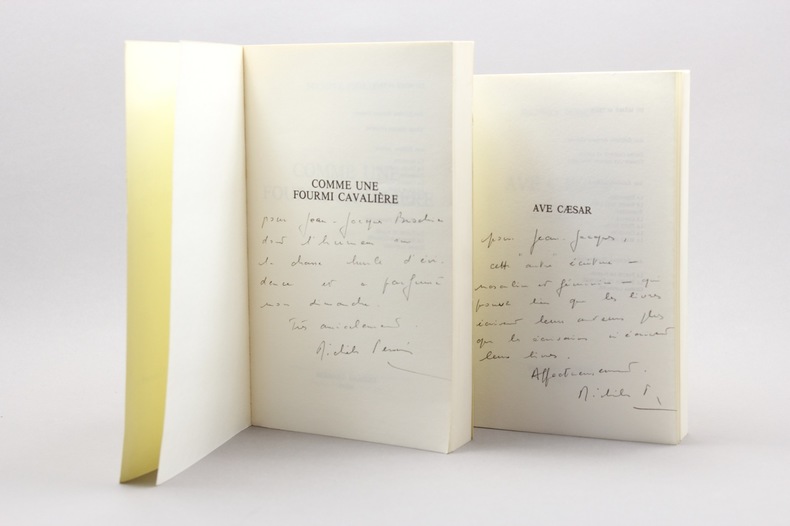 COMME UNE
FOURMI CAVALIÈRE
pour Jean-Jacques
dont l'humour
la chance
dence et a parfumé
mon dimanche.
Très amicalement.
Michèle Perrein
AVE CÆSAR
pour Jean-Jacques,
cette autre écriture —
masculine et féminine — qui
prouve bien que les livres
écrivent leurs auteurs plus
que les écrivains n'écrivent
leurs livres.
Affectueusement.
Michèle P.